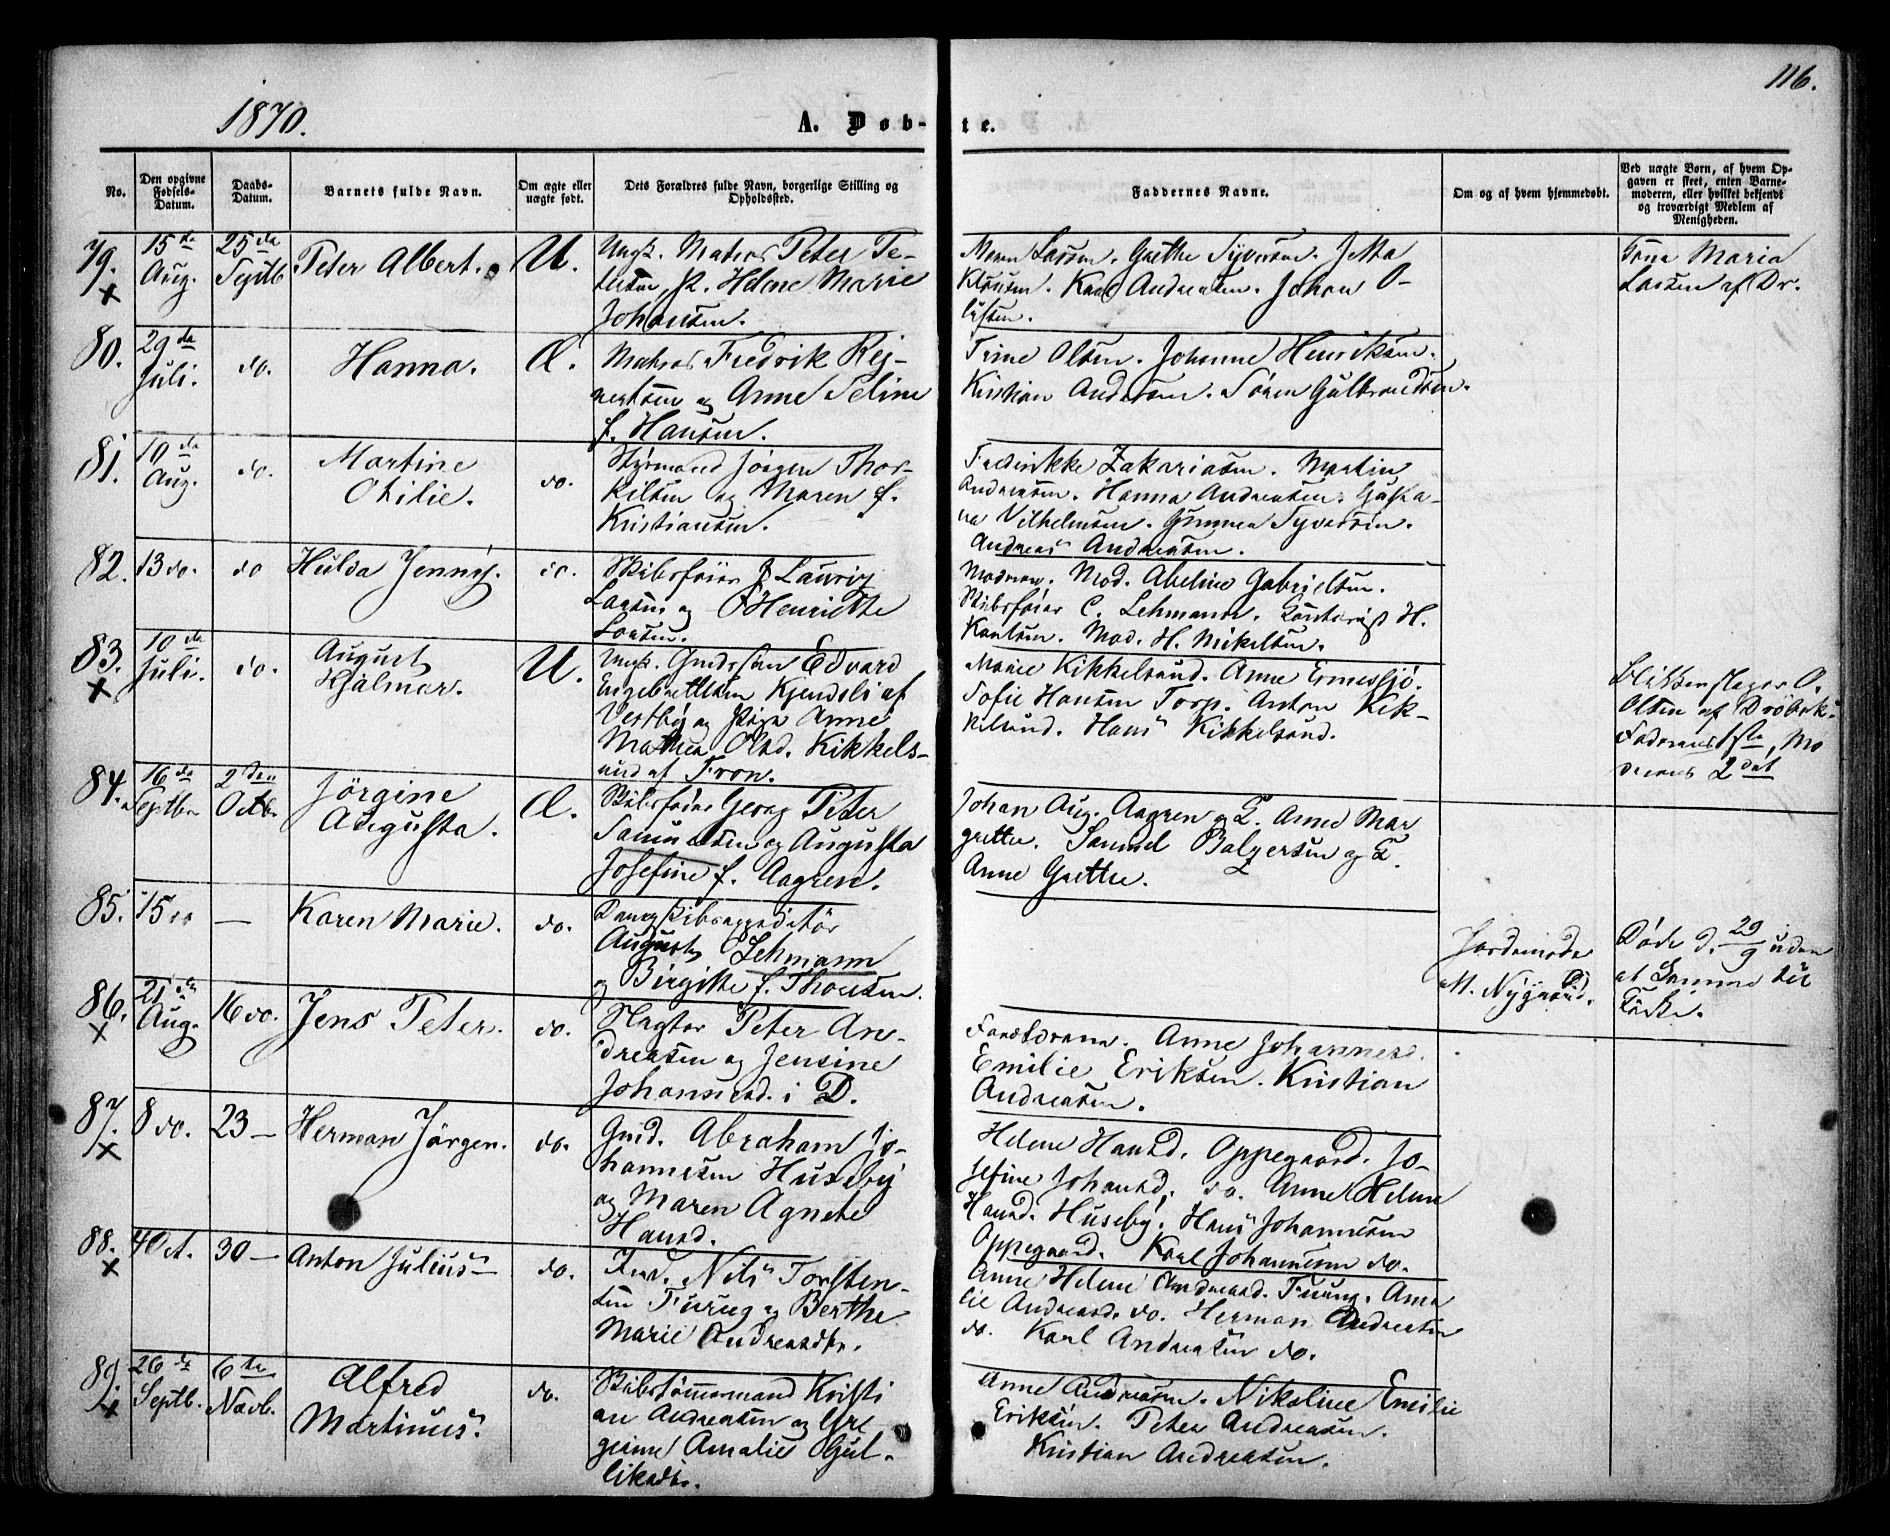 116.
1870.
A. Døb-te.
No.
Den opgivne Fødsels-Datum.
Daabs-Datum.
Barnets fulde Navn.
Om ægte eller uægte født.
Dets Forældres fulde Navn, borgerlige Stilling og Opholdssted.
Faddernes Navne.
Om og af hvem hjemmedøbt.
Ved uægte Børn, af hvem Opgaven er skeet, enten Barnemoderen, eller hvilket bekjendt og troværdigt Medlem af Menigheden.
79. 15de Aug. 25de Septb Peter Albert. U.
Ungk. Matros Peter Petersen, P. Helene Marie
Johansen.
Maren Larsen. Grethe Syversen. Jetta
Klausen. Karl Andreasen. Johan O-
lsen.
Maria
Larsen af Dr.
80. 29de Juli. do. Hanna. Æ.
Matros Fredrik Rej-
nertsen og Anne Seline
f. Hansen.
Trine Olsen. Johanne Henriksen.
Kristian Andersen. Sören Gulbrandsen.
81. 10de Aug. do. Martine
Otilie. do.
Styrmand Jörgen Thor-
kilsen og Maren f.
Kristiansen.
Fredrikke Zakariasen. Martin
Andreasen. Hanna Andreasen. Gusta-
va Vilhelmsen. Gunnea Syversen.
Andreas Andreasen.
82. 13 do. do Hulda Jenny. do.
Skibsförer J Lauriz
Larsen og Henriette
Larsen.
Moderen. Mad. Abeline Gabrielsen.
Skibsförer C. Lehmann. H.
Karlsen. Mad. H. Mikelsen.
83. 10de Juli. do. August
Hjalmar. U.
Ungk. Gudsön Edvard
Engebrettsen Kjendsli af
Vestby og Pige Anne
Mathea Olsd. Kikkels-
und af Fron.
Marie Kikkelsund. Anne Ernessjö.
Sofie Hansen Torp. Anton Kik-
kelsund. Hans Kikkelsund.
Blikkenslager O.
Olsen af Dröbak.
Faderens 1ste, Mo
derens 2det
84. 16de Septbr 2den Octbr Jörgine
Augusta. Æ.
Skibsförer Georg Peter
Samuelsen og Augusta
Josefine f. Aagren.
Johan Aug. Aagren og H. Anne Mar
grethe. Samuel Balzersen og H.
Anne Grethe.
85. 15 do — Karen Marie. do.
Dampskibsexpeditör
August Lehmann
og Birgitte f. Thoresen.
Jordemoder
M. Nygaard.
Döde d. 29/9 uden
at komme til
Kirke.
86. 21de Aug. 16 do. Jens Peter. do.
Slagter Peter An-
dreasen og Jensine
Johannesd. i D.
Forældrene. Anne Johannesd.
Emilie Eriksen. Kristian
Andreasen.
87. 8 do. 23 — Herman Jörgen. do.
Gmd. Abraham Jo-
hannesen Huseby
og Maren Agnete
Hansd.
Helene Hansd. Oppegaard. Jo-
sefine Johansd. do. Anne Helene
Hansd. Huseby. Hans Johannesen
Oppegaard. Karl Johannesen do.
88. 4 Oct. 30 — Anton Julius — do.
Ind. Nils Torsten-
sen Furug og Berthe
Marie Andreasdtr.
Anne Helene Andreasd. Furung. Ama
lie Andreasd. do. Herman Andreasen
do. Karl Andreasen do.
89. 26de Septb. 6te Novb. Alfred
Martinus. do.
Skibstömmermand Kristi
an Andreasen og
Amalie Gul-
liksdtr.
Anne Andreasen. Nikoline Emilie
Eriksen. Peter Andreasen.
Kristian Andreasen.